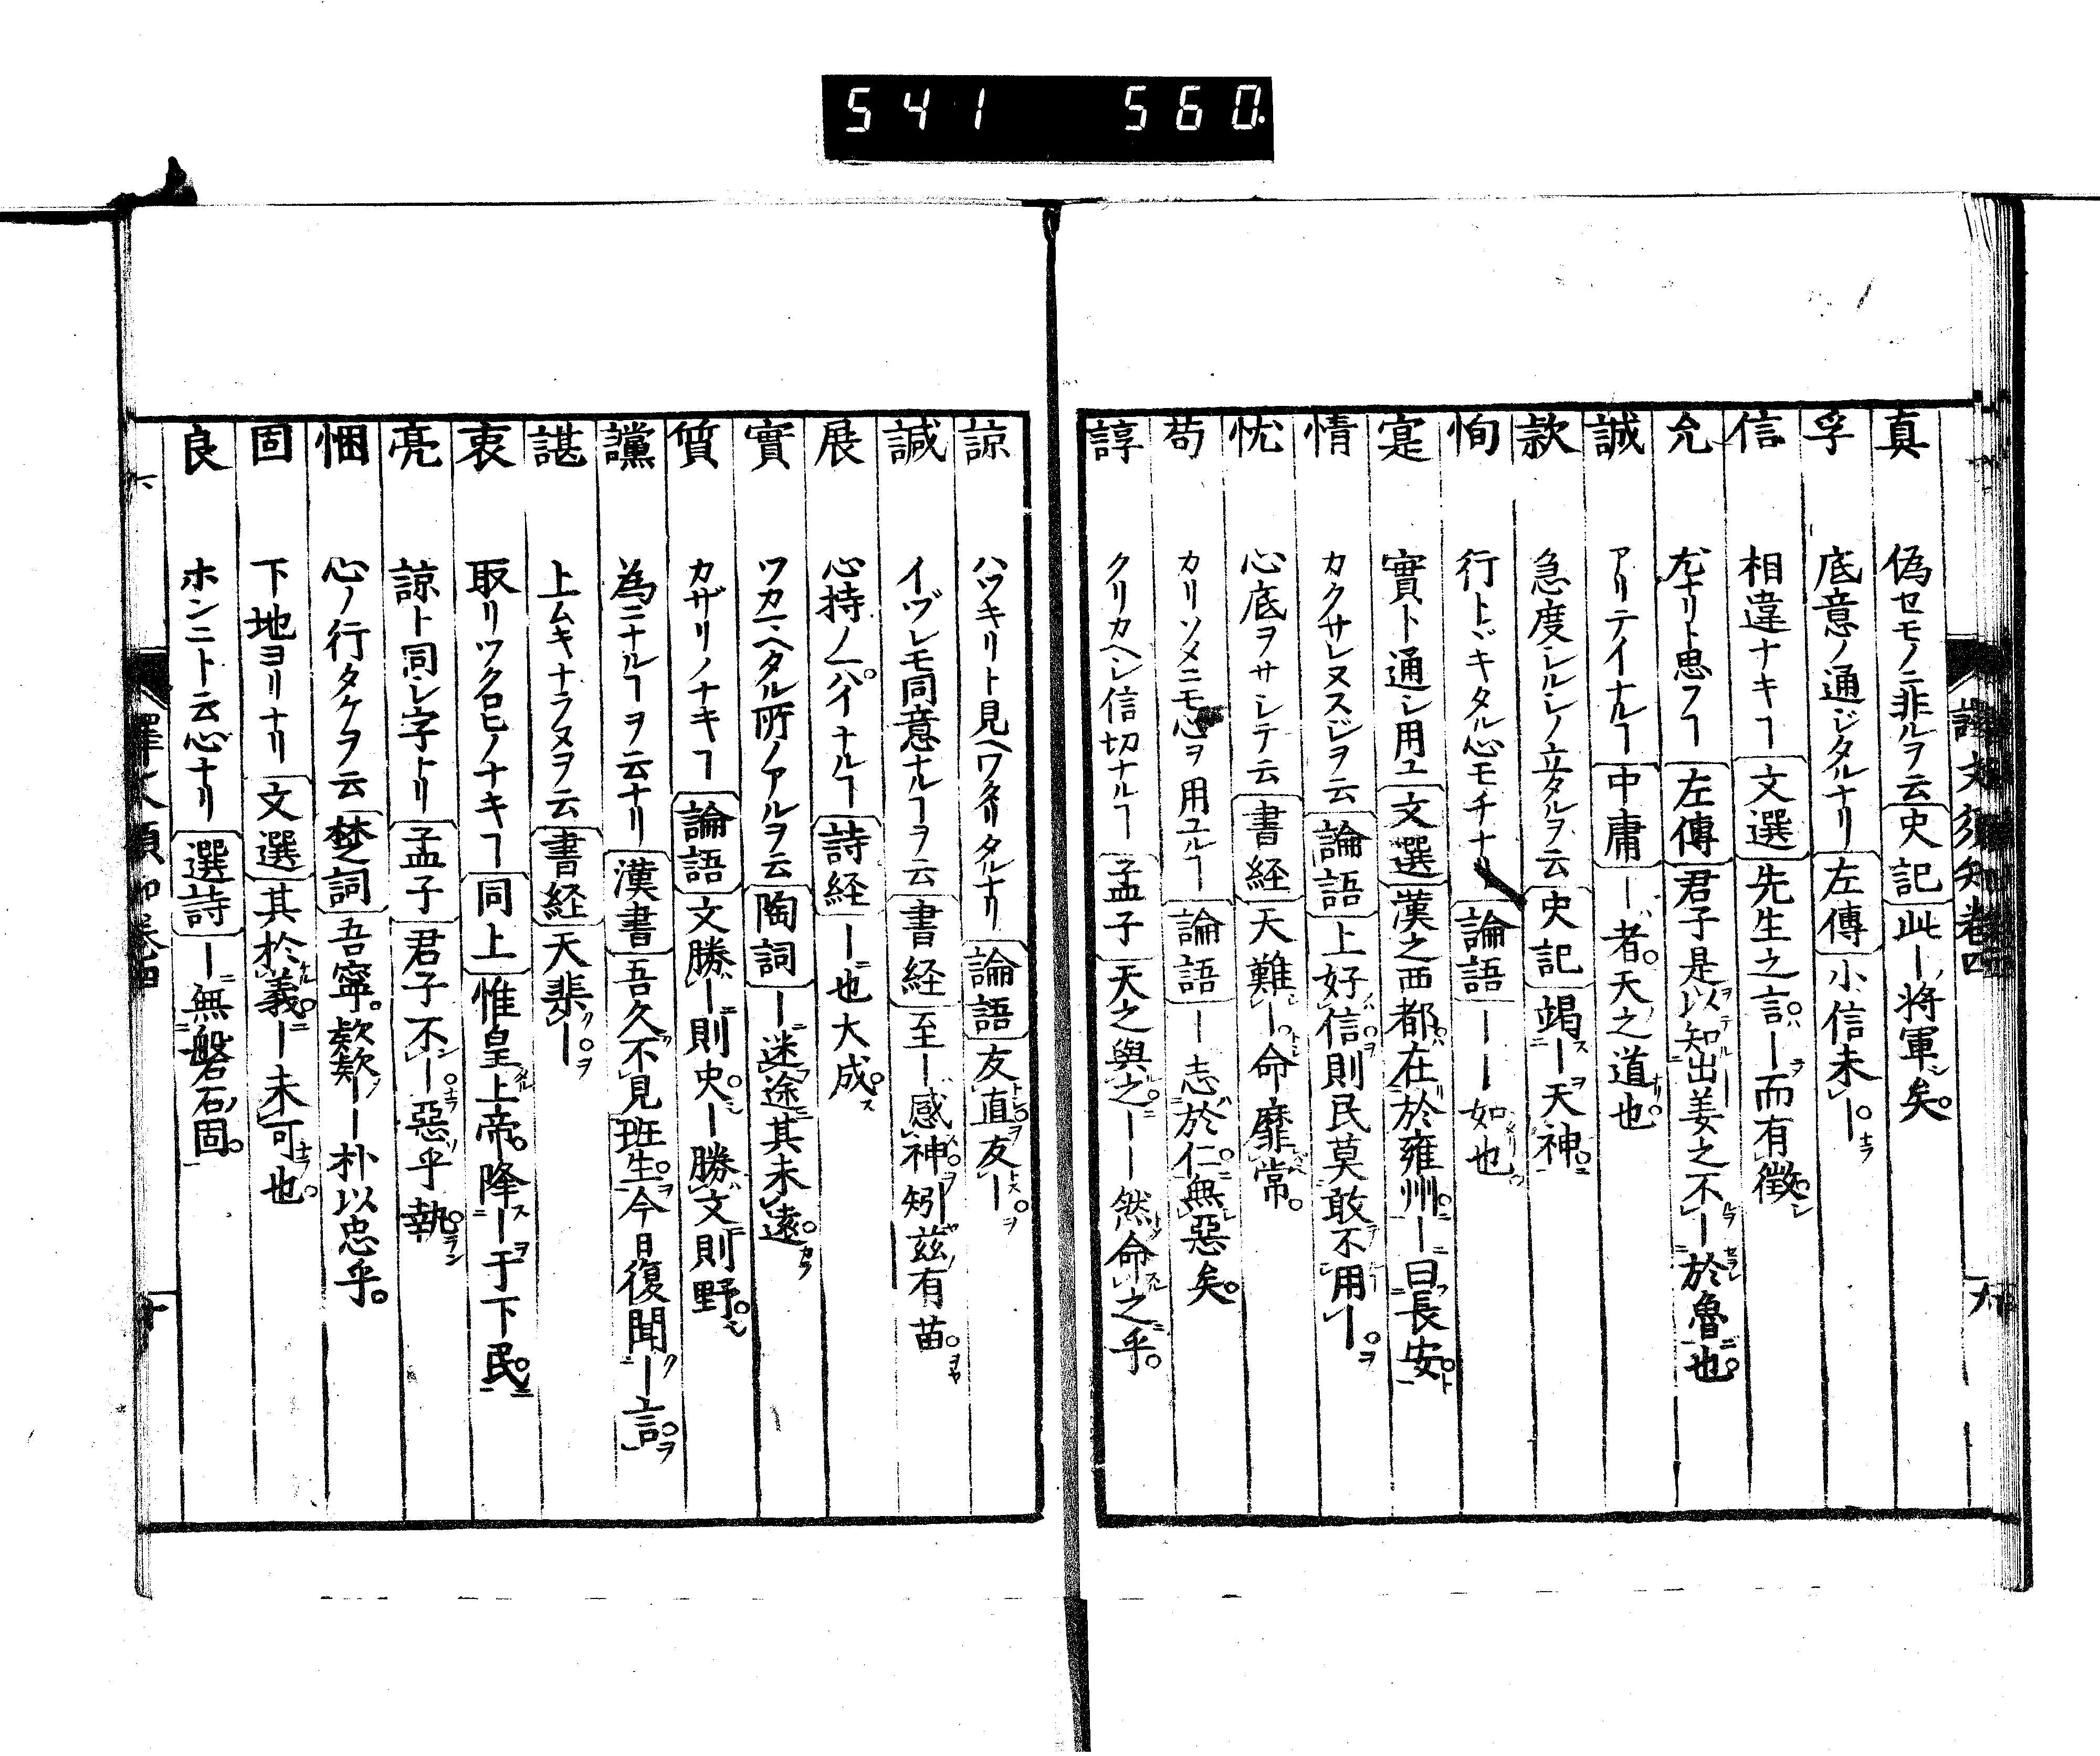 541 560
譯文須知卷四
真 偽セモノニ非ルヲ云 史記 此ー將軍矣
孚 底意ノ通ジタルナリ 左傳 小信未ー
信 相違ナキヿ 文選 先生之言ー而有徵
允 尤ナリト思フヿ 左傳 君子是以知出姜之不ー於魯也
誠 アリテイナルヿ 中庸 ー者天之道也
款 急度シルシノ立タルヲ云 史記 竭ー天神
恂 行トヾキタル心モチナリ 論語 ーー如也
寔 實ト通シ用ユ 文選 漢之西都在於雍州ー曰長安
情 カクサレヌスジヲ云 論語 上好信則民莫敢不用ー
忱 心底ヲサシテ云 書経 天難ー命靡常
苟 カリソメニモ心ヲ用ユルヿ 論語 ー志於仁無惡矣
諄 クリカヘシ信切ナルヿ 孟子 天之與之ーー然命之乎
諒 ハツキリト見ヘワタリタルナリ 論語 友直友ー
諴 イヅレモ同意ナルヿヲ云 書経 至ー感神矧茲有苗
展 心持ノ一パイナルヿ 詩経 ー也大成
實 ワカマヘタル所ノアルヲ云 陶詞 ー迷途其未遠
質 カザリノナキヿ 論語 文勝ー則史ー勝文則野
讜 為ニナルヿヲ云ナリ 漢書 吾久不見班生今日復聞ー言
諶 上ムキナラヌヲ云 書経 天棐ー
衷 取リツクロヒノナキヿ 同上 惟皇上帝降ー于下民
亮 諒ト同シ字ナリ 孟子 君子不ー惡乎執
悃 心ノ行タケヲ云 楚詞 吾寧ー欵欵ー朴以忠乎
固 下地ヨリナリ 文選 其於義ー未可也
良 ホンニト云心ナリ 選詩 ー無磐石固